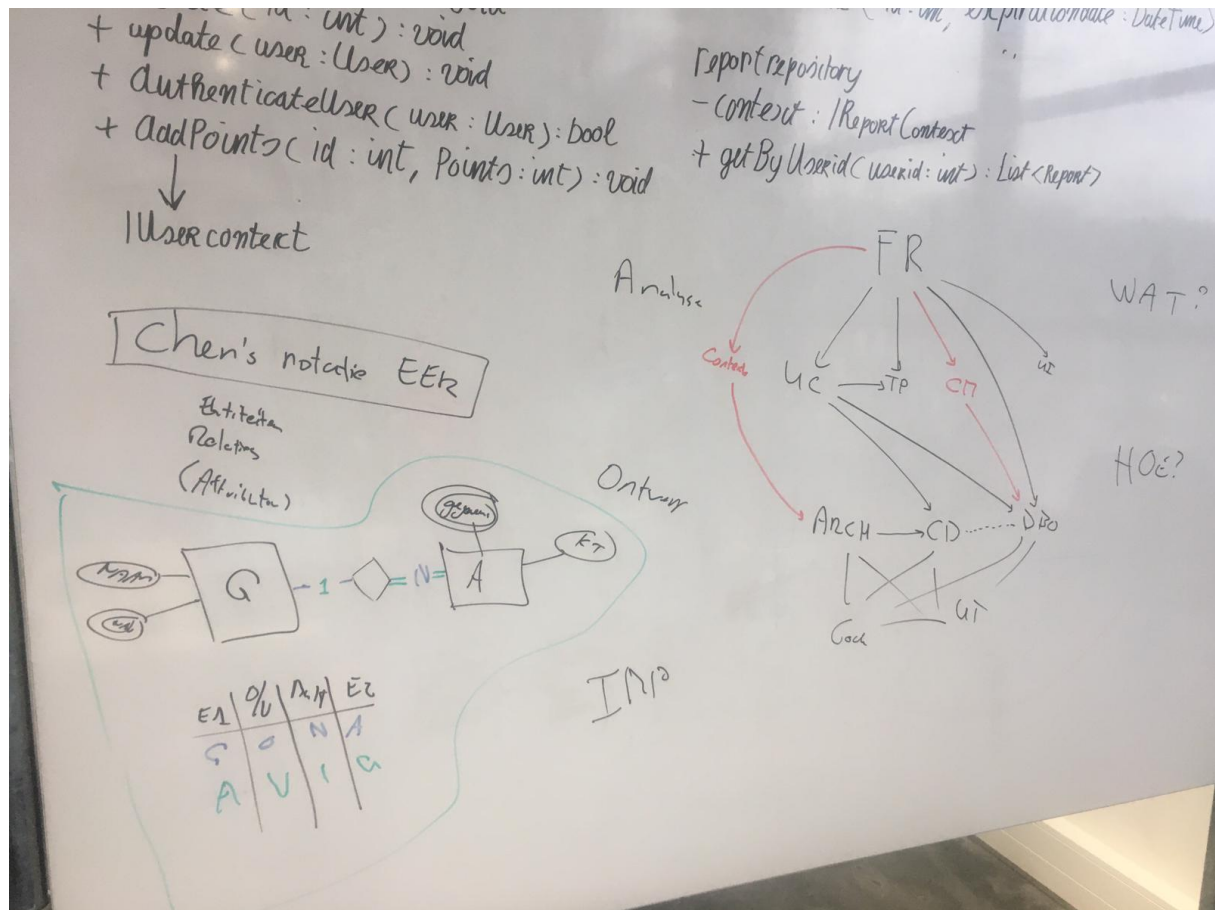 (id : int) : void
+ update (user : User) : void
+ authenticateUser (user : User) : bool
+ addPoints (id : int, Points : int) : void
IUsercontext
(id : int, expirationdate : DateTime)
reportrepository
- context : IReportContext
+ getByUserid (userid : int) : List<Report>
Chen's notatie EER
Entiteiten
Relaties
(Attributen)
G - 1 - = N = A
E1 O/V E2
G O N A
A V 1 G
Analyse
Ontwerp
IMP
FR
WAT?
UC TP CM UI
HOE?
ARCH CD DBO
UT